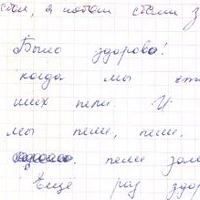 а потом стали з
Было здорово!
когда мы
них пели. И
мы пели, пели,
пели
Ещё раз здор